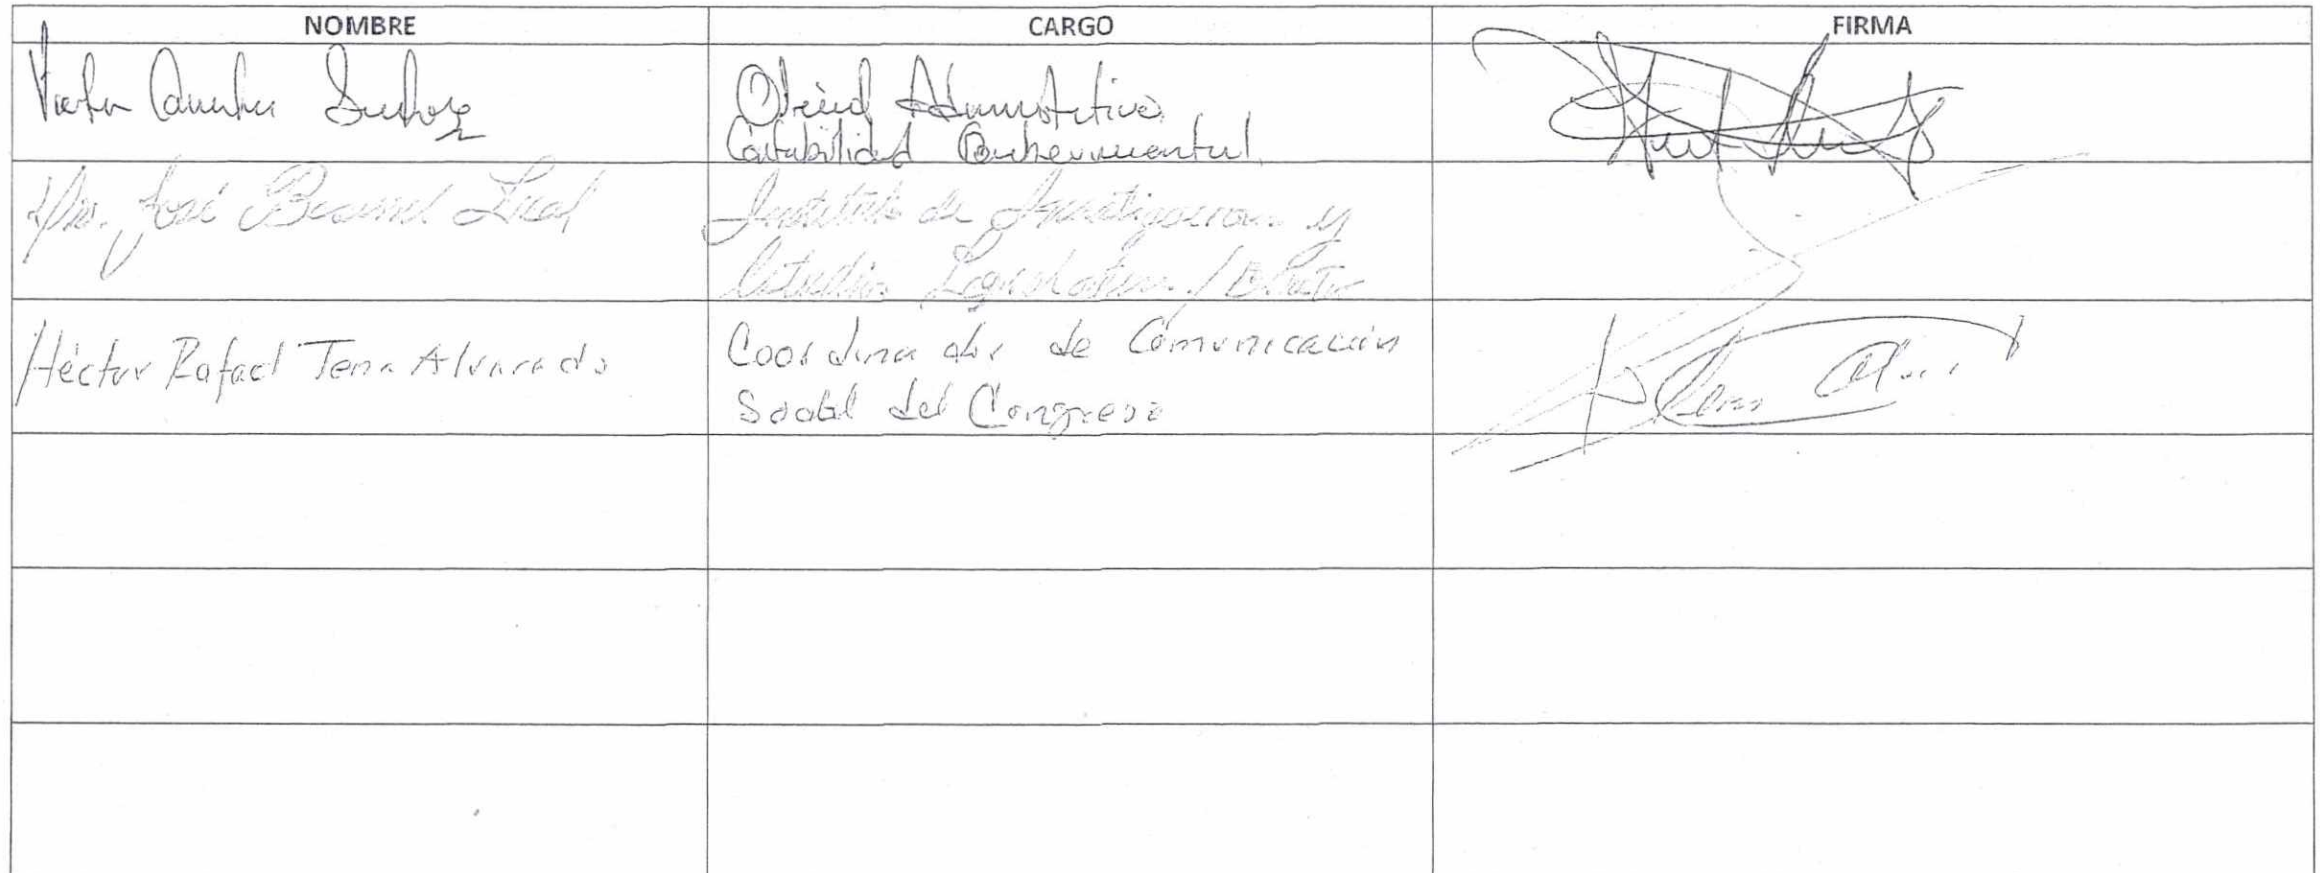 NOMBRE CARGO FIRMA
Oficial Administrativo
Contabilidad Gubernamental
José Leal
Instituto de Investigaciones y
Estudios Legislativos / Director
Héctor Rafael Tena Alvarado
Coordinador de Comunicación
Social del Congreso